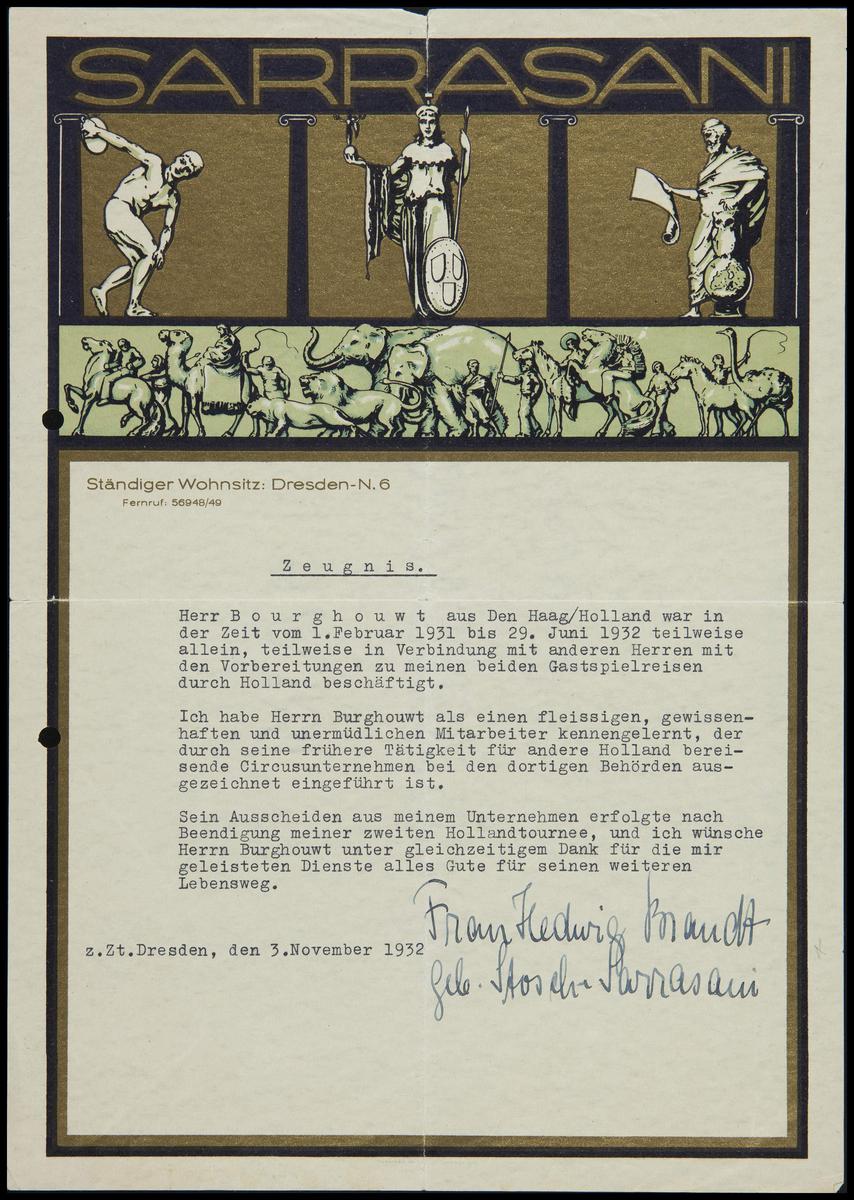 SARRASANI
Ständiger Wohnsitz: Dresden-N. 6
Fernruf: 56948/49
Zeugnis.
Herr Bourghouwt aus Den Haag/Holland war in
der Zeit vom 1.Februar 1931 bis 29. Juni 1932 teilweise
allein, teilweise in Verbindung mit anderen Herren mit
den Vorbereitungen zu meinen beiden Gastspielreisen
durch Holland beschäftigt.
Ich habe Herrn Burghouwt als einen fleissigen, gewissen-
haften und unermüdlichen Mitarbeiter kennengelernt, der
durch seine frühere Tätigkeit für andere Holland berei-
sende Circusunternehmen bei den dortigen Behörden aus-
gezeichnet eingeführt ist.
Sein Ausscheiden aus meinem Unternehmen erfolgte nach
Beendigung meiner zweiten Hollandtournee, und ich wünsche
Herrn Burghouwt unter gleichzeitigem Dank für die mir
geleisteten Dienste alles Gute für seinen weiteren
Lebensweg.
z.Zt.Dresden, den 3.November 1932
Frau Hedwig Brandt
geb. Stosch-Sarrasani